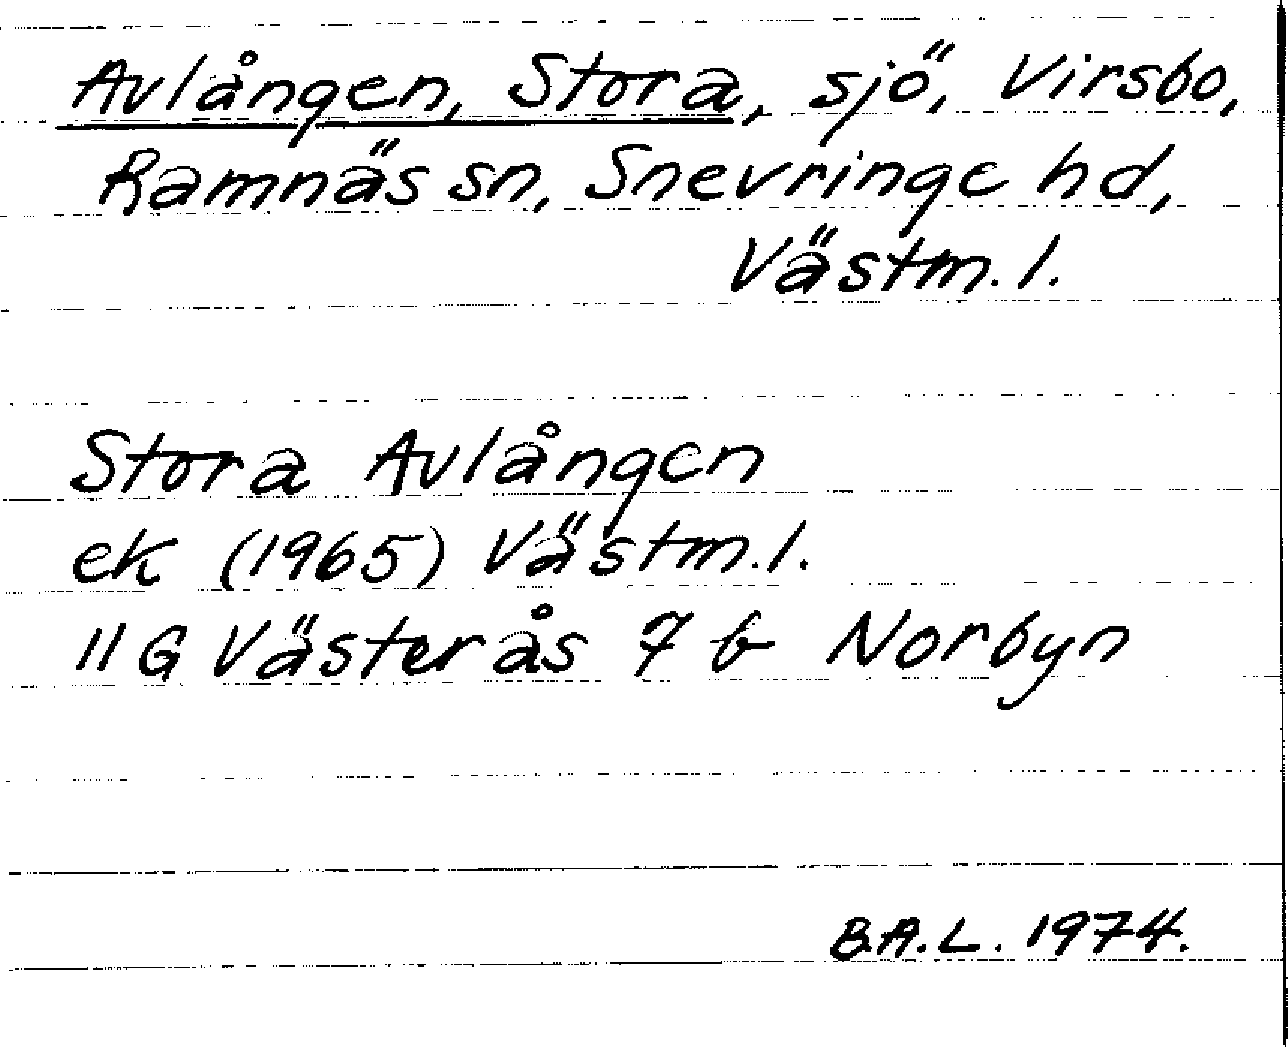 Avlången, Stora, sjö, Virsbo,
Ramnäs sn, Snevringe hd,
Västm. l.
Stora Avlången
ek (1965) Västm. l.
11G Västerås 7 b Norbyn
B.A.L. 1974.